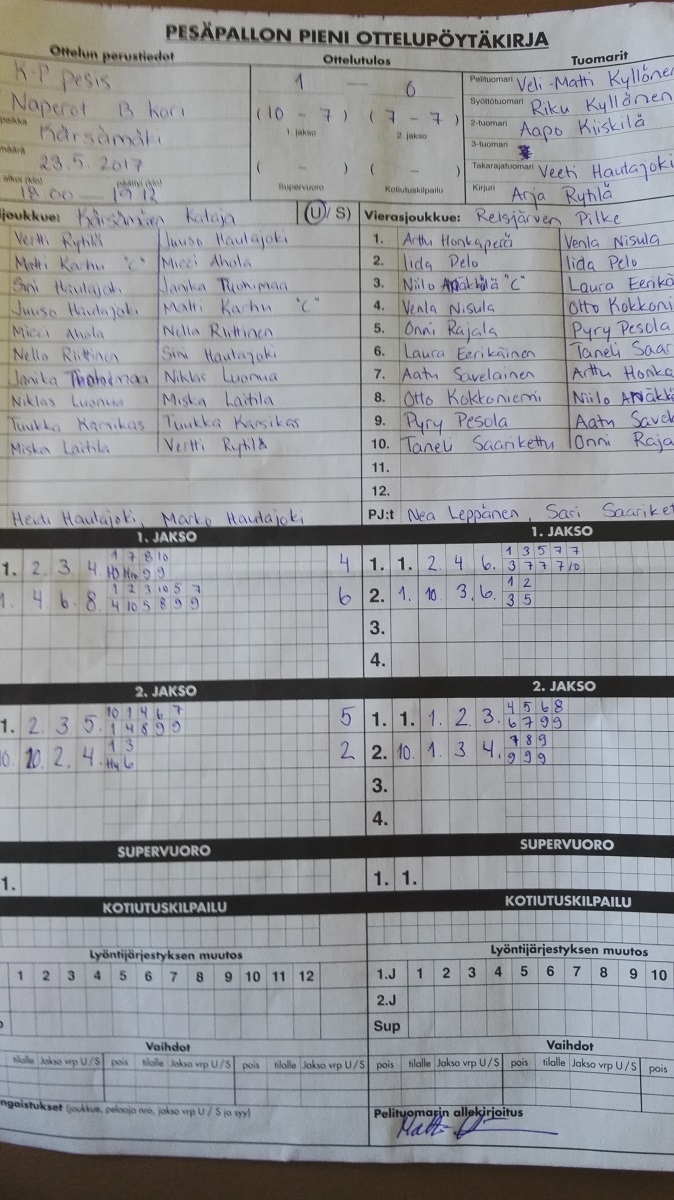 PESÄPALLON PIENI OTTELUPÖYTÄKIRJA
Ottelun perustiedot Ottelutulos Tuomarit
K-P pesis 1 — 6 Pelituomari Veli-Matti Kyllönen
Naperot B kori (10 - 7) (7 - 7) Syöttötuomari Riku Kyllönen
1. jakso 2. jakso
Kärsämäki 2-tuomari Aapo Kiiskilä
3-tuomari
23.5.2017 ( - ) ( - ) Takarajatuomari Veeti Hautajoki
18.00 — 1912 Supervuoro Kotiutuskilpailu Kirjuri Arja Rytilä
joukkue: Kärsämäen Kataja (U/S) Vierasjoukkue: Reisjärven Pilke
Vertti Rytilä Juuso Hautajoki 1. Arttu Honkaperä Venla Nisula
Matti Karhu "C" Micci Ahola 2. Iida Pelo Iida Pelo
Sini Hautajoki Janika 3. Niilo "C" Laura Eerikä
Juuso Hautajoki Matti Karhu "C" 4. Venla Nisula Otto Kokkoni
Micci Ahola Nella Riittinen 5. Onni Rajala Pyry Pesola
Nella Riittinen Sini Hautajoki 6. Laura Eerikäinen Taneli Saar
Janika Niklas Luonua 7. Aatu Savelainen Arttu Honka
Niklas Luonua Miska Laitila 8. Otto Kokkoniemi Niilo
Tuukka Karsikas Tuukka Karsikas 9. Pyry Pesola Aatu Savel
Miska Laitila Vertti Rytilä 10. Taneli Saarikettu Onni Raja
11.
12.
Heidi Hautajoki, Marko Hautajoki PJ:t Nea Leppänen, Sari Saariket
1. JAKSO 1. JAKSO
1 7 8 10 1 3 5 7 7
1. 2. 3. 4. 9 9 4 1. 1. 2 4 6. 3 7 7 7 10
1 2 3 10 5 7 1 2
1. 4 6. 8. 4 10 5 8 9 9 6 2. 1. 10. 3. 6. 3 5
3.
4.
2. JAKSO 2. JAKSO
10 1 4 6 7 4 5 6 8
1. 2. 3. 5. 1 4 8 9 9 5 1. 1. 1. 2. 3. 6 7 9 9
1 3 7 8 9
10. 2. 4. 6 2 2. 10. 1. 3 4. 9 9 9
3.
4.
SUPERVUORO SUPERVUORO
1. 1. 1.
KOTIUTUSKILPAILU KOTIUTUSKILPAILU
Lyöntijärjestyksen muutos Lyöntijärjestyksen muutos
1 2 3 4 5 6 7 8 9 10 11 12 1.J 1 2 3 4 5 6 7 8 9 10
2.J
Sup
Vaihdot Vaihdot
tilalle Jakso vrp U/S pois tilalle Jakso vrp U/S pois tilalle Jakso vrp U/S pois tilalle Jakso vrp U/S pois tilalle Jakso vrp U/S pois
ngaistukset (joukkue, pelaaja nro, jakso vrp U / S ja syy) Pelituomarin allekirjoitus